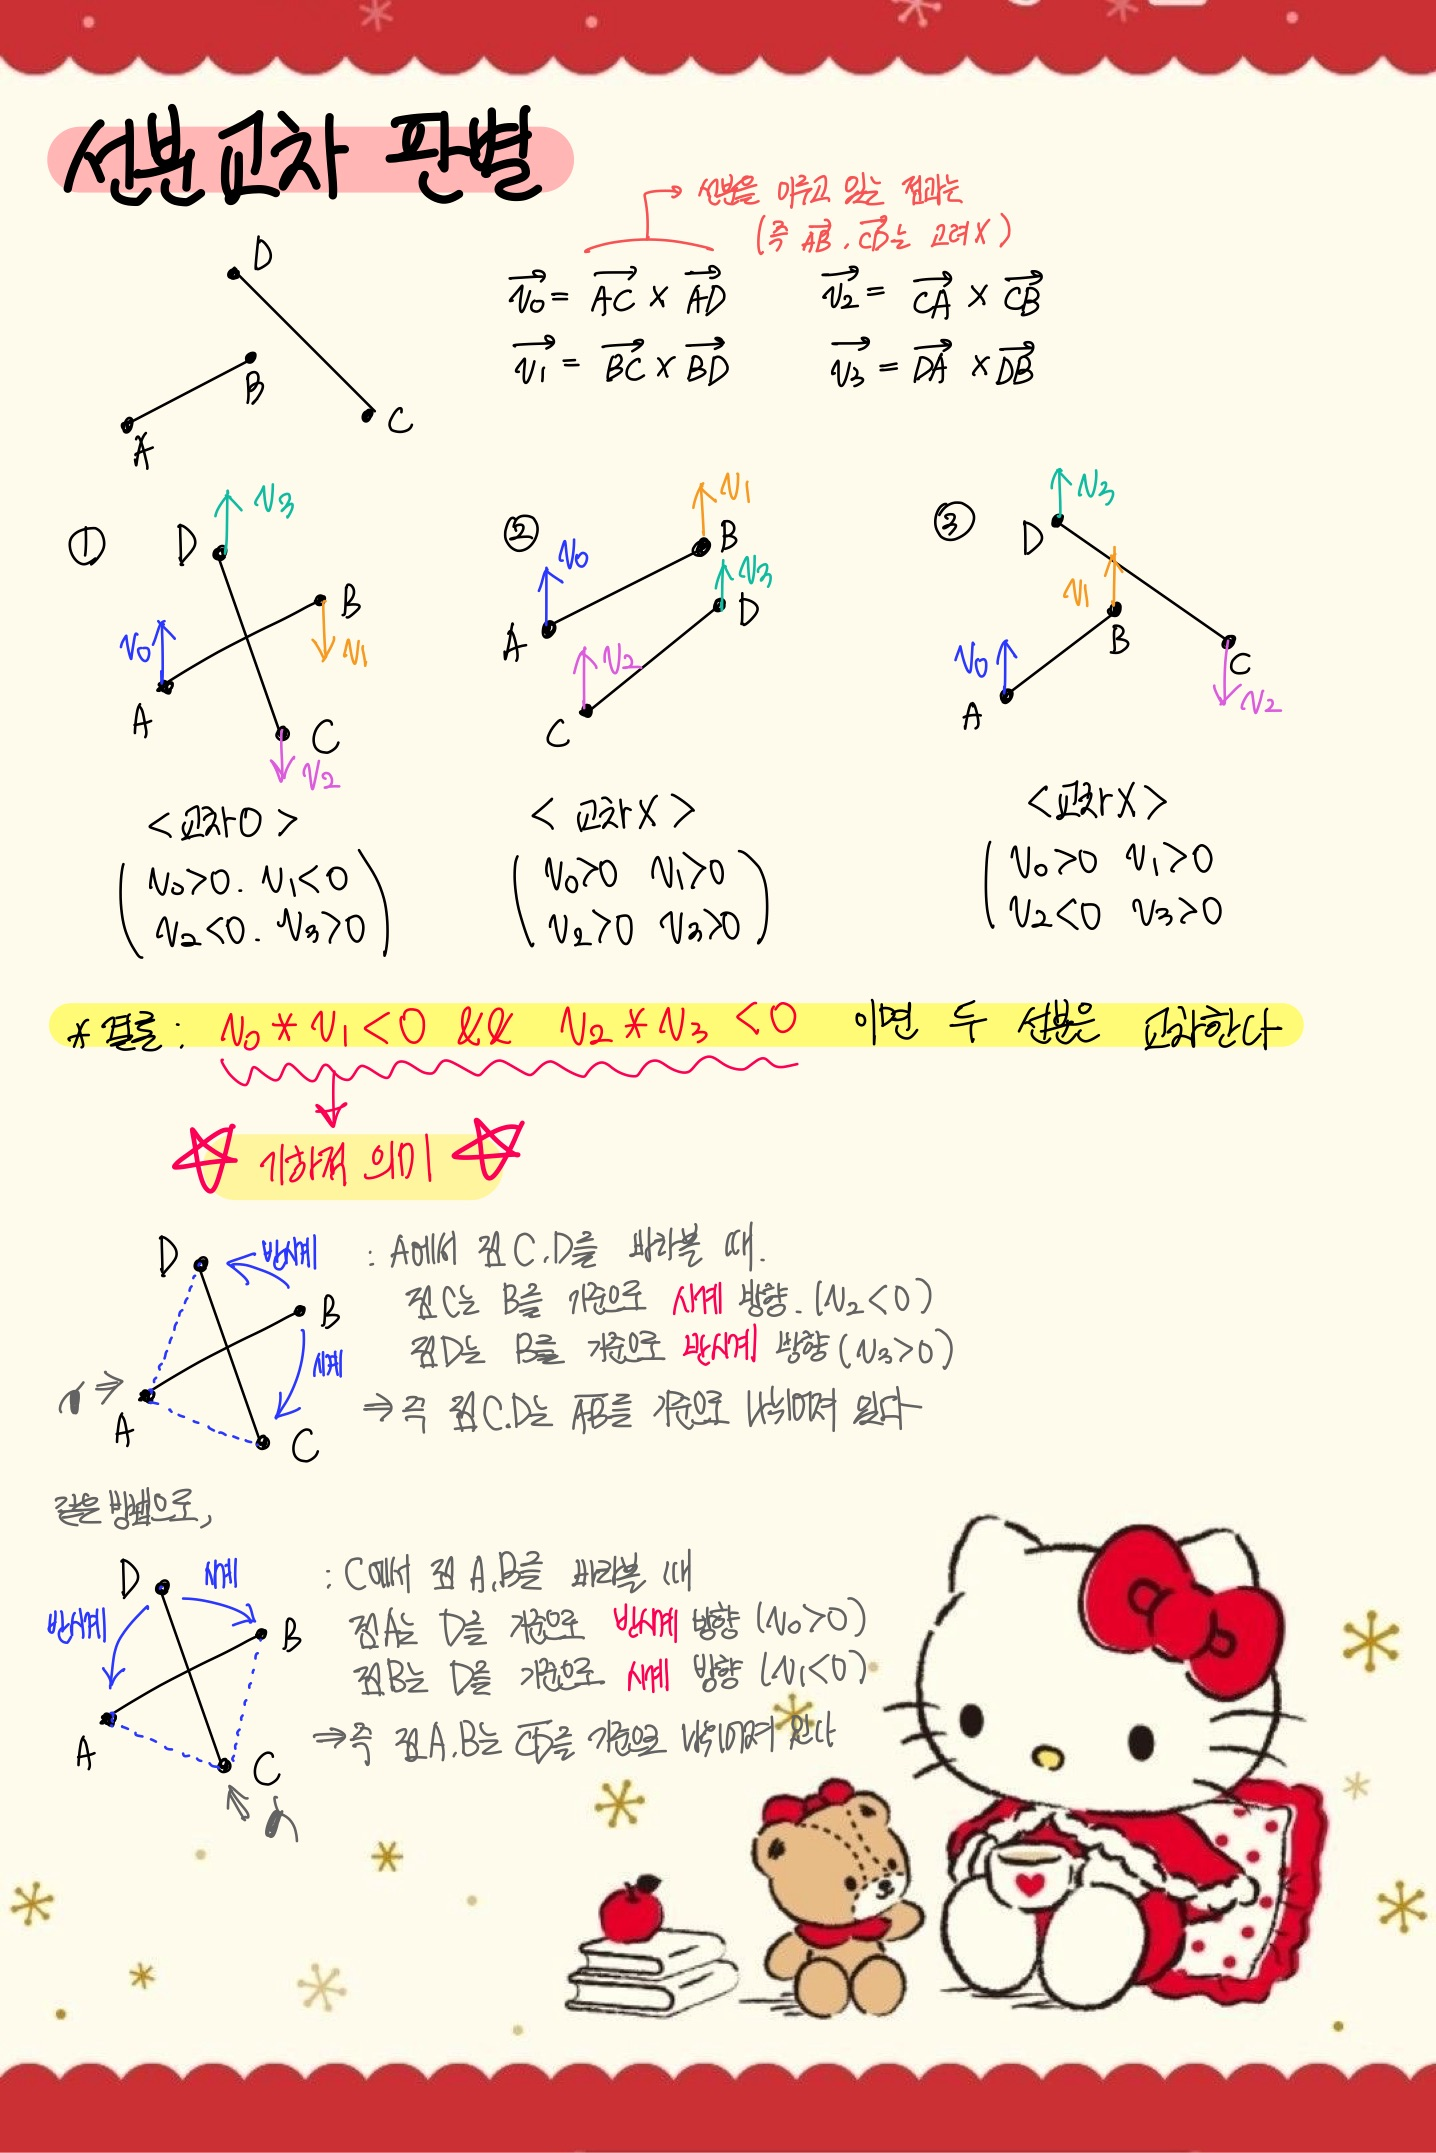 선분교차 판별
→ 선분을 이루고 있는 점과는
(즉 AB, CD는 고려X)
D
B
A
C
v0 = AC × AD
v2 = CA × CB
v1 = BC × BD
v3 = DA × DB
①
D
v3
B
v0
v1
A
C
v2
<교차O>
v0>0. v1<0
v2<0. v3>0
②
v1
B
v0
v3
D
A
v2
C
<교차X>
v0>0 v1>0
v2>0 v3>0
③
v3
D
v1
B
v0
C
v2
A
<교차X>
v0>0 v1>0
v2<0 v3>0
* 결론: v0 * v1 < 0 && v2 * v3 < 0 이면 두 선분은 교차한다
기하적 의미
D
반시계
B
시계
A
C
: A에서 점 C,D를 바라볼 때.
점C는 B를 기준으로 시계 방향. (v2<0)
점D는 B를 기준으로 반시계 방향 (v3>0)
⇒ 즉 점C.D는 AB를 기준으로 나뉘어져 있다
같은 방법으로,
D
시계
반시계
B
A
C
: C에서 점 A,B를 바라볼 때
점A는 D를 기준으로 반시계 방향 (v0>0)
점B는 D를 기준으로 시계 방향 (v1<0)
⇒ 즉 점A.B는 CD를 기준으로 나뉘어져 있다